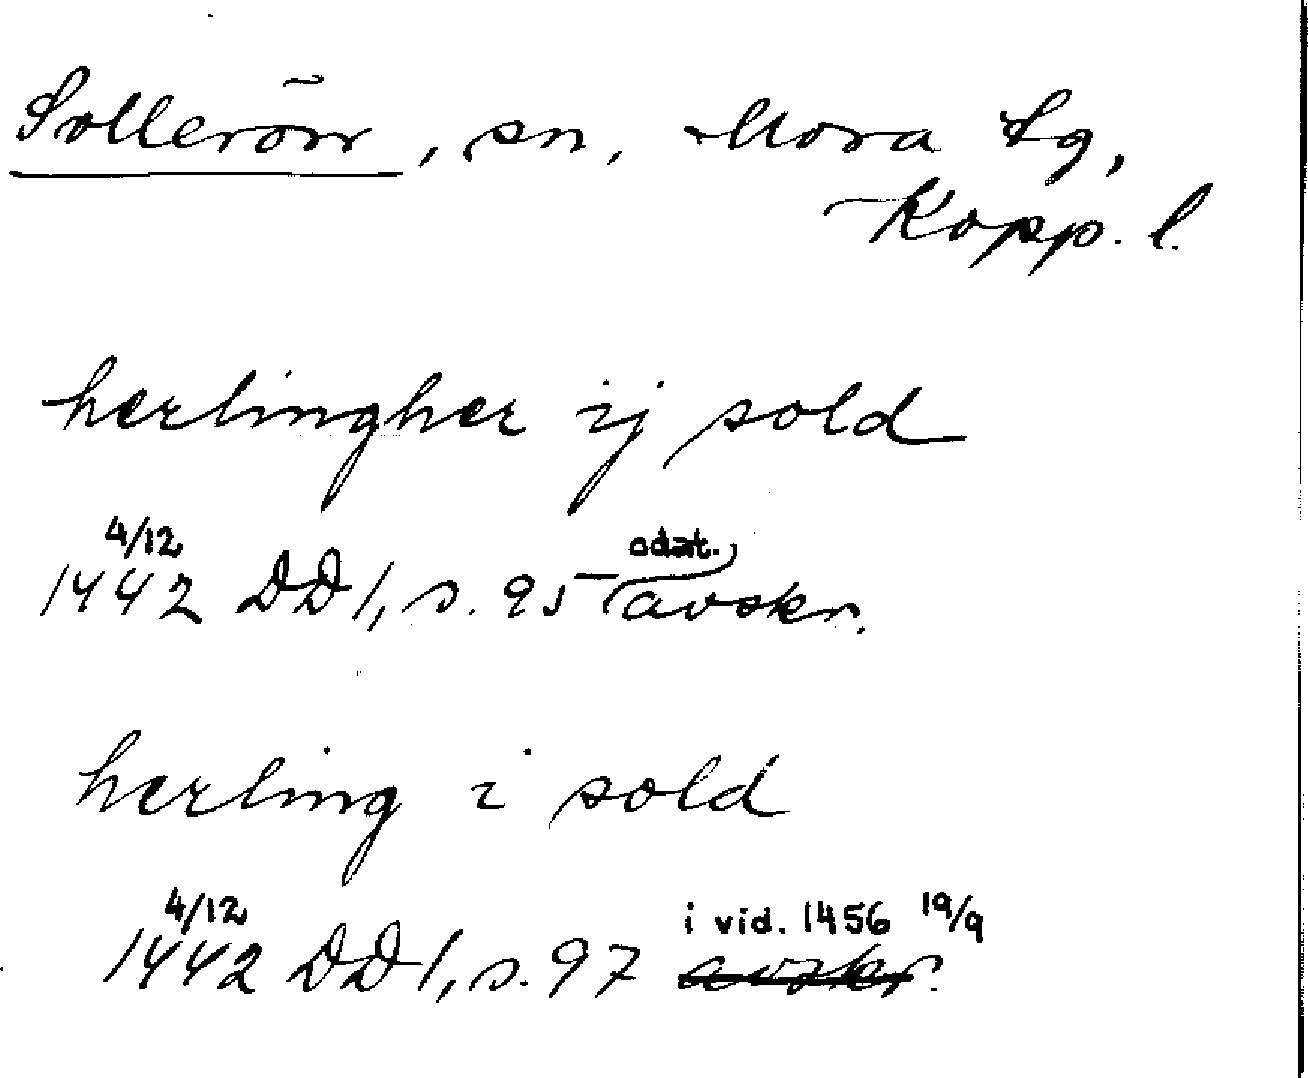 Sollerön, sn, Mora tg,
Kopp. l.
herlingher ij sold
4/12
1442 DD 1, s. 95 odat. avskr.
herling i sold
4/12
1442 DD 1, s. 97 avskr. i vid. 1456 19/9